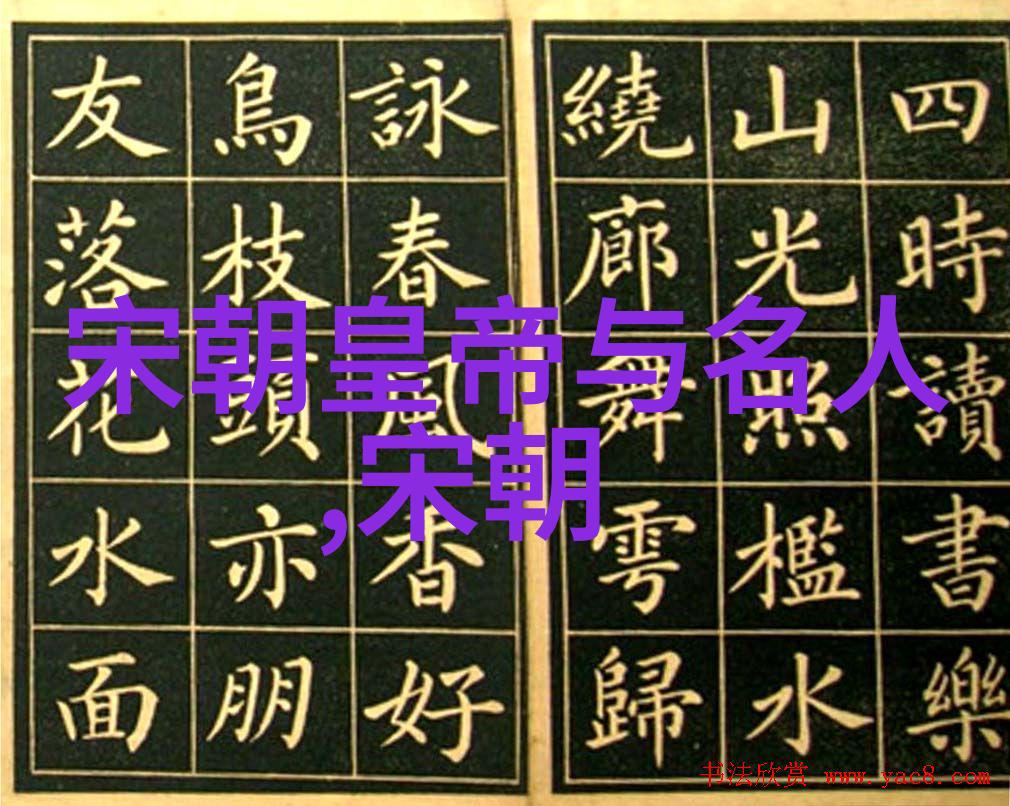 四時讀書樂
山光照檻水
繞廊舞雩歸
詠春風香好
鳥枝頭亦朋
友落花水面
宋朝皇帝与名人
,宋朝
书法欣赏 www.yac8.com